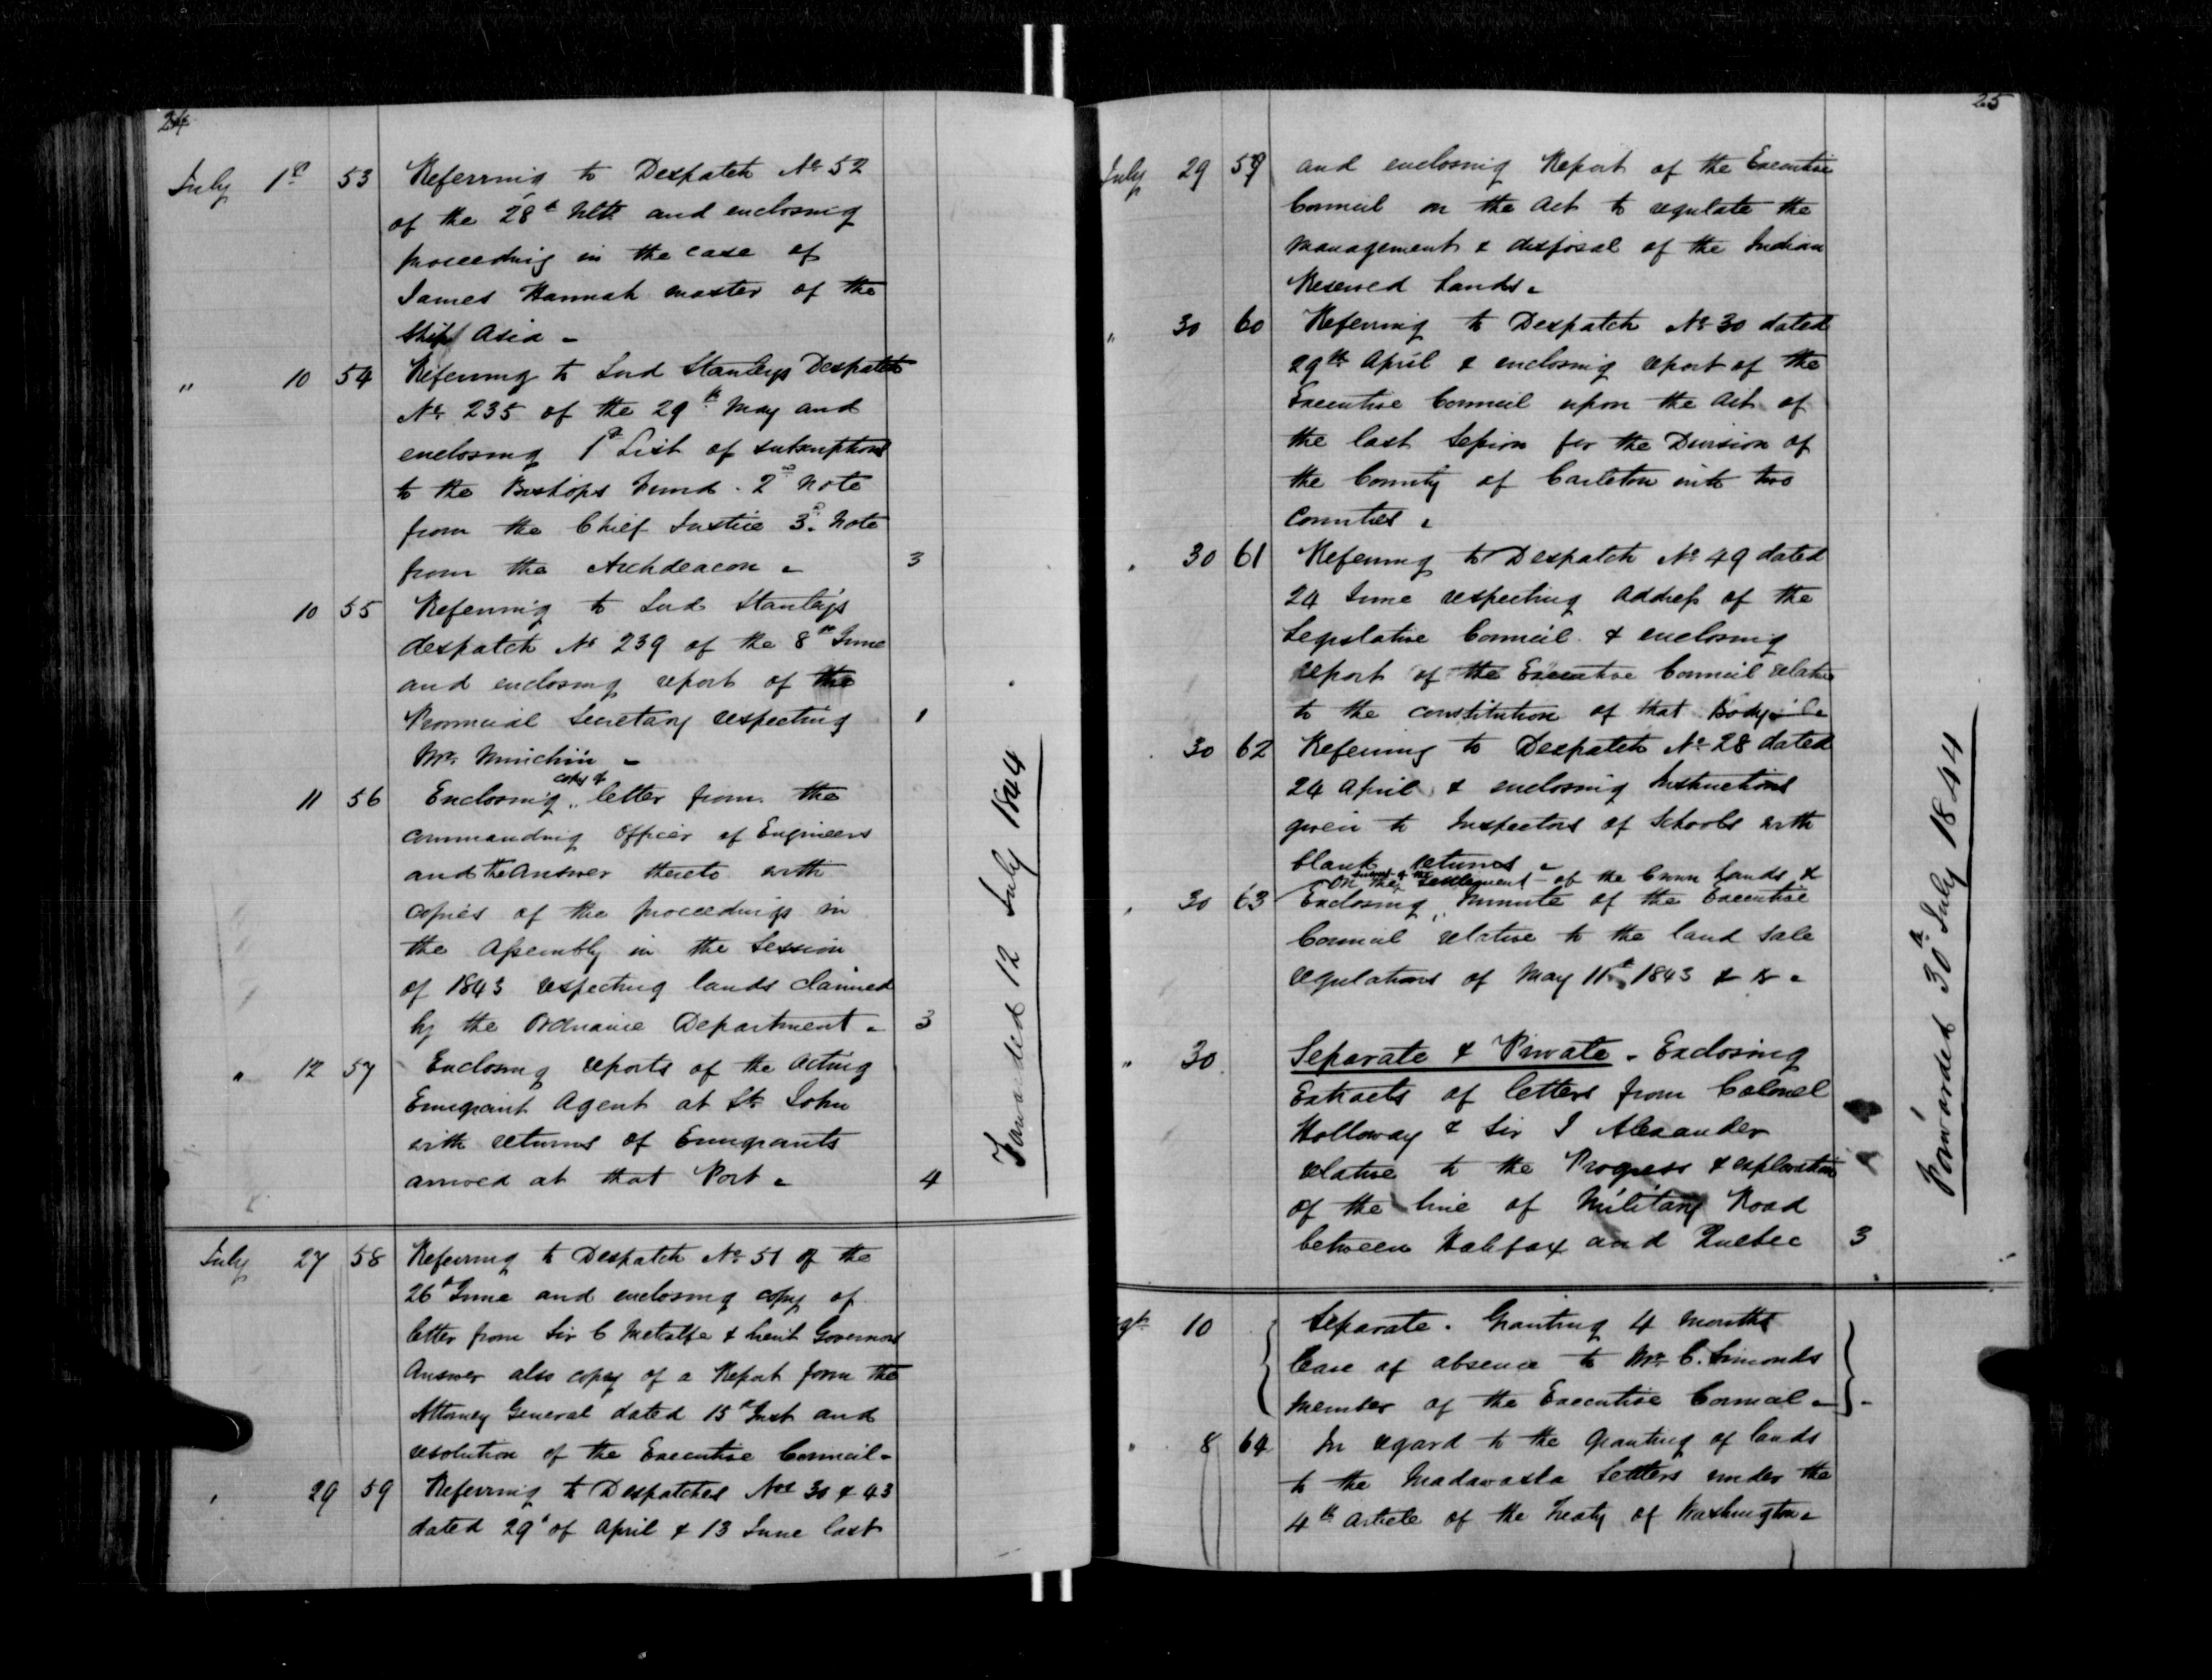 24
July 1st 53 Referring to Despatch No 52
of the 28th Ulto and enclosing
proceeding in the case of
James Hannah master of the
Ship Asia -
" 10 54 Referring to Lord Stanleys Despatch
No 235 of the 29th May and
enclosing 1st List of subscriptions
to the Bishops Fund. 2nd Note
from the Chief Justice 3d Note
from the Archdeacon - 3
10 55 Referring to Lord Stanley's
despatch No 239 of the 8th June
and enclosing report of the
Provincial Secretary respecting 1
Mr. Minchin -
11 56 Enclosing copy of letter from the
commanding Officer of Engineers
and the Answer thereto with
copies of the proceedings in
the Assembly in the Session
of 1843 respecting lands claimed
by the Ordnance Department - 3
" 12 57 Enclosing reports of the Acting
Emigrant Agent at St. John
with returns of Emigrants
arrived at that Port - 4
Forwarded 12 July 1844
July 27 58 Referring to Despatch No 51 of the
26th June and enclosing copy of
letter from Sir C Metcalfe & Lieut Governors
Answer also copy of a Report from the
Attorney General dated 15th Inst and
resolution of the Executive Council -
" 29 59 Referring to Despatches Nos 30 & 43
dated 29th of April & 13 June last
25
July 29 59 and enclosing Report of the Executive
Council on the Act to regulate the
management & disposal of the Indian
Reserved Lands -
" 30 60 Referring to Despatch No 30 dated
29th April & enclosing report of the
Executive Council upon the Act of
the last Session for the Division of
the County of Carleton into two
Counties -
" 30 61 Referring to Despatch No 49 dated
24 June respecting Address of the
Legislative Council & enclosing
report of the Executive Council relative
to the constitution of that Body
" 30 62 Referring to Despatch No 28 dated
24 April & enclosing Instructions
given to Inspectors of Schools with
blank returns -
on the settlement of the Crown Lands &
" 30 63 Enclosing Minute of the Executive
Council relative to the land sale
regulations of May 11th 1843 &
" 30 Separate & Private - Enclosing
Extracts of letters from Colonel
Holloway & Sir J Alexander
relative to the Progress & exploration
of the line of Military Road
between Halifax and Quebec 3
Forwarded 30th July 1844
10 Separate. Granting 4 months
leave of absence to Mr. C. Simonds
member of the Executive Council -
" 8 64 In regard to the granting of lands
to the Madawaska Settlers under the
4th Article of the Treaty of Washington -